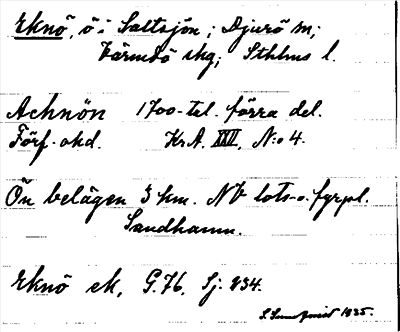 Eknö, ö i Saltsjön; Djurö sn;
Värmdö skg; Sthlms l.
Acknön 1700-tal. förra del.
Förf. okd. Kr.A. XXVI, N:o 4.
Ön belägen 3 km. NV lots- o. fyrpl.
Sandhamn.
Eknö ek, G.76, Sj: 234.
1935.